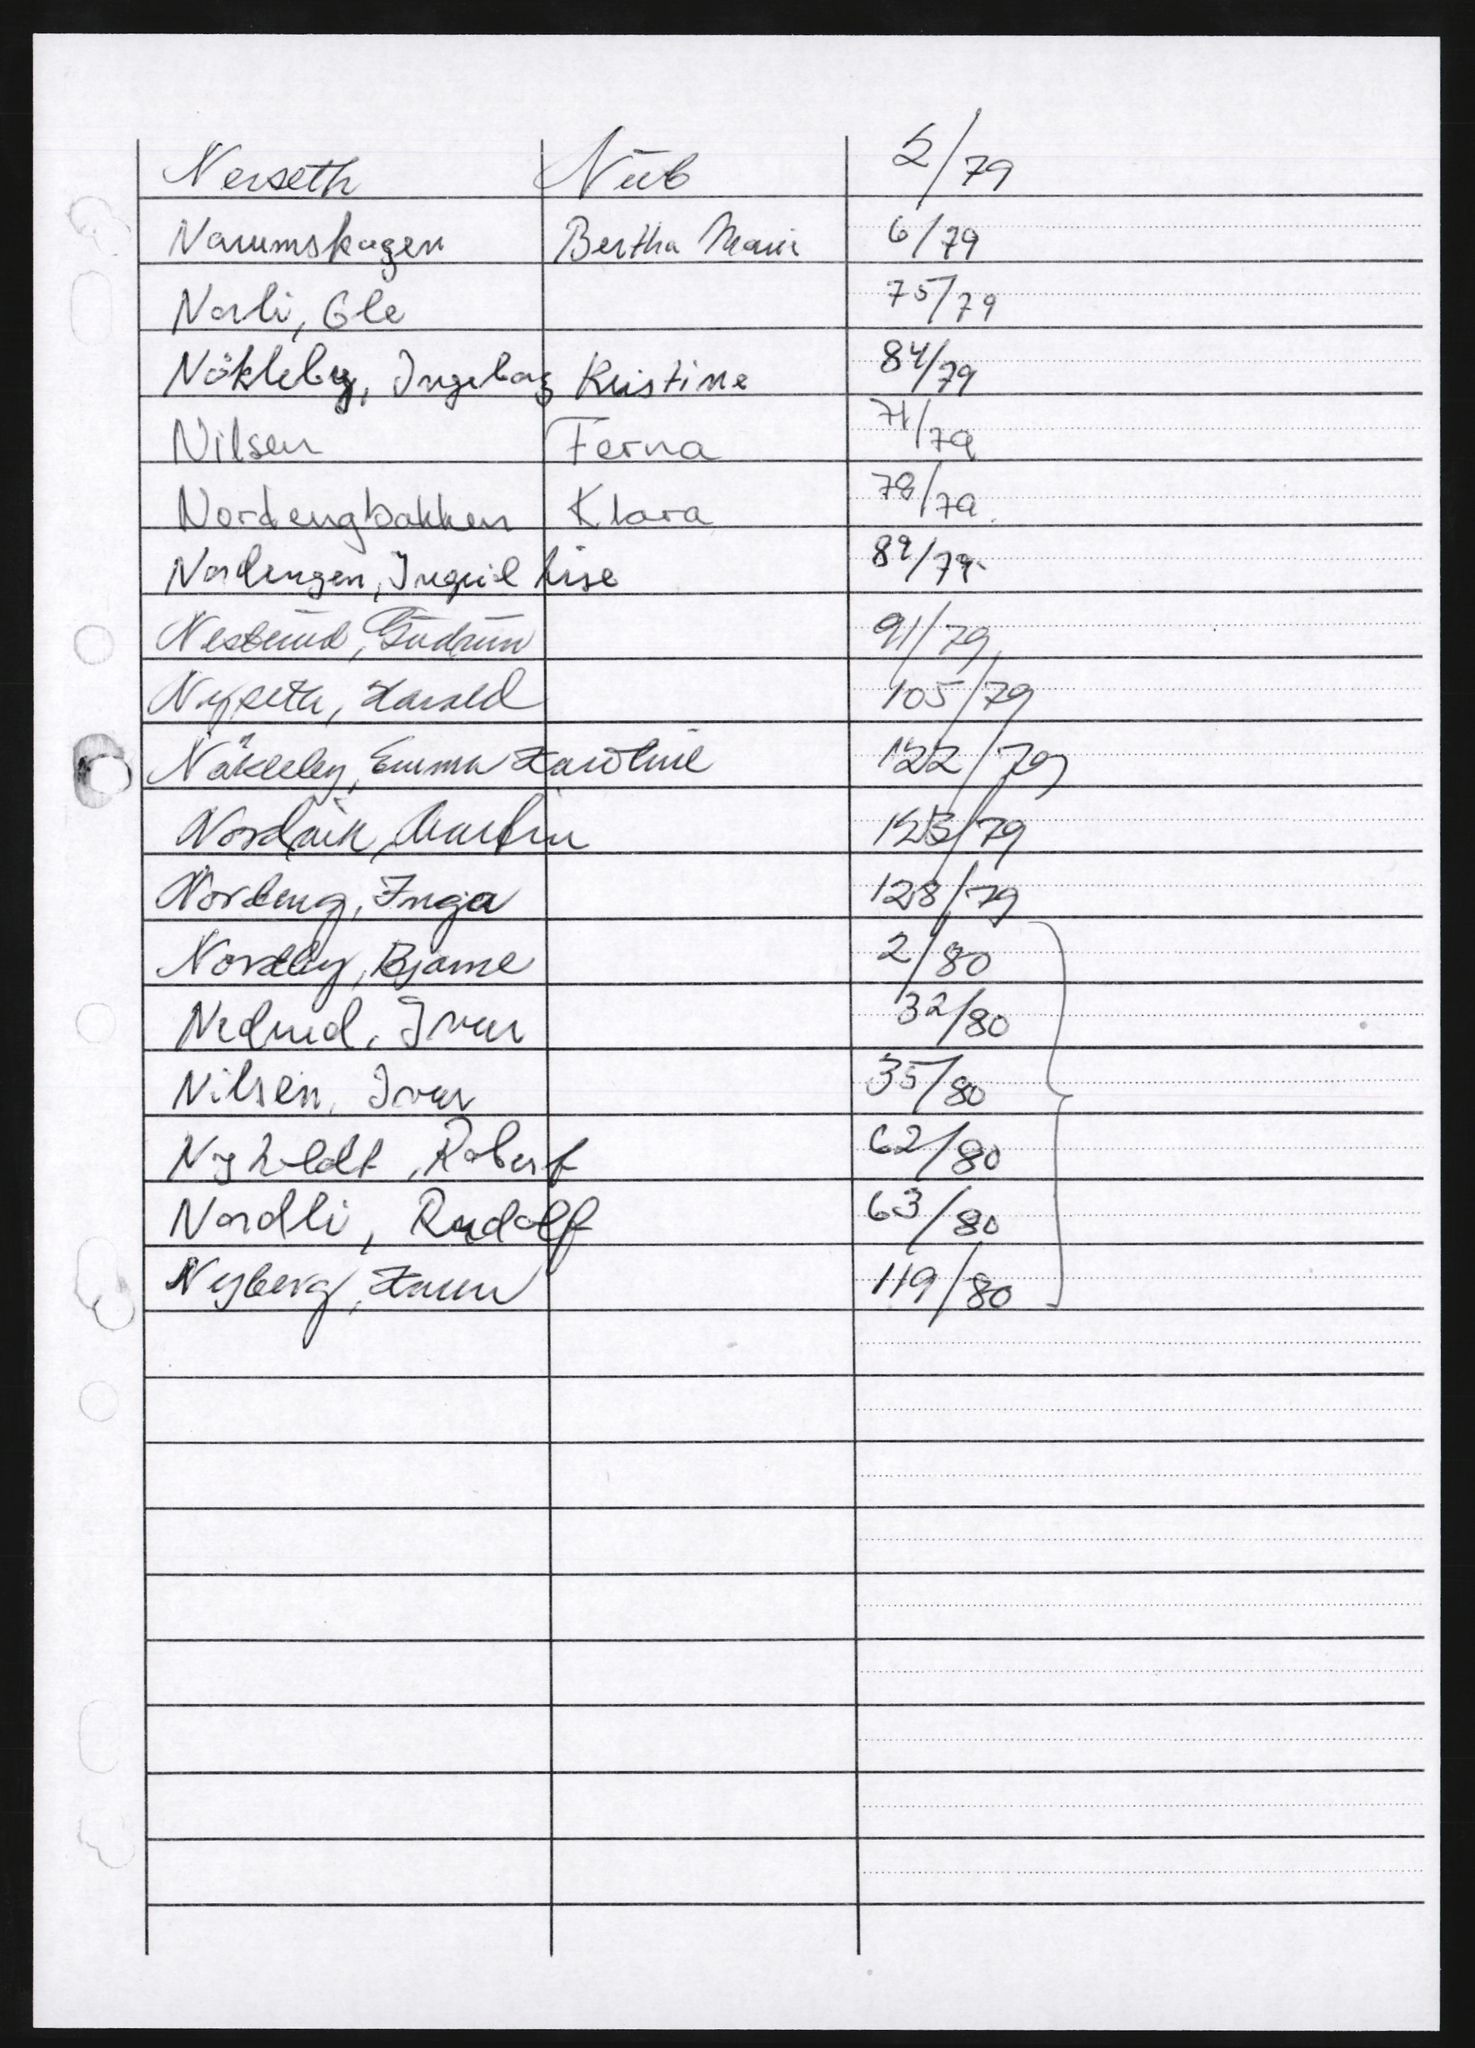 Nerseth 5/79
Narumskagen Bertha Marie 6/79
Narli, Ole 75/79
Nökleby, Ingeborg Kristine 84/79
Nilsen Ferna 71/79
Nordengbakken Klara 78/79
Nordengen, Ingrid Lise 89/79
Gudrun 91/79
Nyseth, Harald 105/79
Nökleby, Emma Karoline 122/79
Martin 123/79
Nordeng, Inga 128/79
Nordby, Bjarne 2/80
Nedrud, Ivar 32/80
Nilsen, Ivar 35/80
Nyholdt, Robert 62/80
Nordli, Rudolf 63/80
Nyberg, 119/80